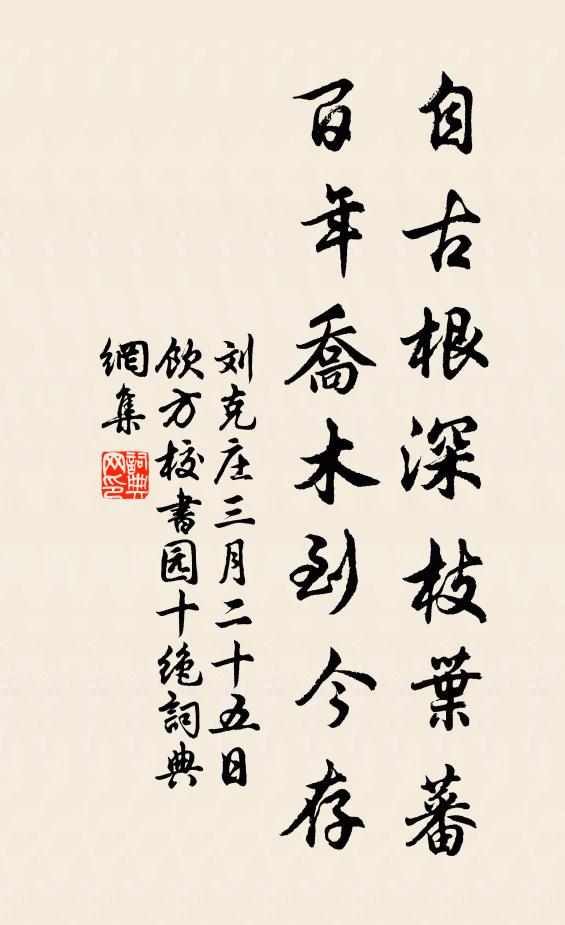 自古根深枝葉蕃
百年喬木到今存
刘克庄三月二十五日
飲方校書园十绝詞典
網集
詞典
网印